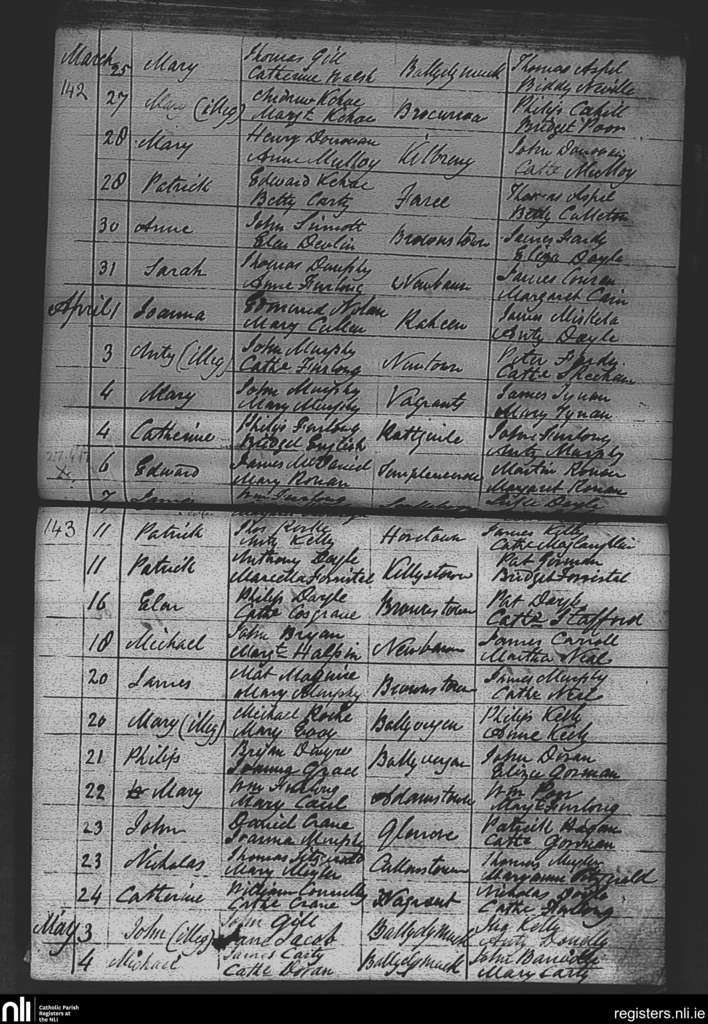 March 25 Mary Thomas Gill Ballydymuck Thomas Aspel
Catherine Walsh Biddy Neville
142 27 (illeg) Andrew Kehoe Philip Cahill
Margt Kehoe Bridget Poor
28 Mary Henry Donovan Kilbreny John Donovan
Anne Mulloy Cathe Mulloy
28 Patrick Edward Kehoe Faree Thomas Aspel
Betty Carty Betty Culleton
30 Anne John Sinnott Brownstown James Fardy
Elen Devlin Eliza Doyle
31 Sarah Thomas Newbawn James Conran
Anne Furlong Margaret Cain
April 1 Joanna Edmund Nolan Raheen James Miskela
Mary Cullen Anty Doyle
3 Anty (illeg) John Murphy Newtown Peter Fardy
Cathe Furlong Cathe
4 Mary John Murphy Vagrants James Tynan
Mary Murphy Mary Tynan
4 Catherine Philip Furlong John Furlong
Bridget English Anty Murphy
6 Edward James McDaniel Martin Ronan
Mary Ronan Margaret Ronan
7 James Wm Furlong
Doyle
143 11 Patrick Roche Horetown James Kelly
Anty Kelly Cathe
11 Patrick Anthony Doyle Killystown Pat Gorman
Marcella Forristel Bridget Forristal
16 Elen Philip Doyle Brownstown Pat Doyle
Cathe Cosgrave Cathe Stafford
18 Michael John Bryan Newbawn James Carroll
Margt Halpin Martha Neal
20 James Mat Maguire Brownstown James Murphy
Mary Murphy Cathe Neal
20 Mary (illeg) Michael Roche Ballyvergen Philip Kelly
Mary Anne Kelly
21 Philip Bryan Ballyvergan John Doran
Joanna Grace Eliza Gorman
22 Mary Wm Furlong Adamstown Wm Poor
Mary Margt Furlong
23 John Daniel Crane Glenore Patrick Hagan
Joanna Murphy Cathe Gorman
23 Nicholas Thomas Fitzgerald Cullenstown Thomas Meyler
Mary Meyler Maryanne Fitzgerald
24 Catherine William Connelly Vagrant Nicholas Doyle
Cathe Crane Cathe Furlong
May 3 John (illeg) John Gill Ballydymuck Kelly
Jane Jacob Anty Donelly
4 Michael James Carty Ballydymuck John
Cathe Doran Mary Carty
nli Catholic Parish
Registers at
the NLI
registers.nli.ie